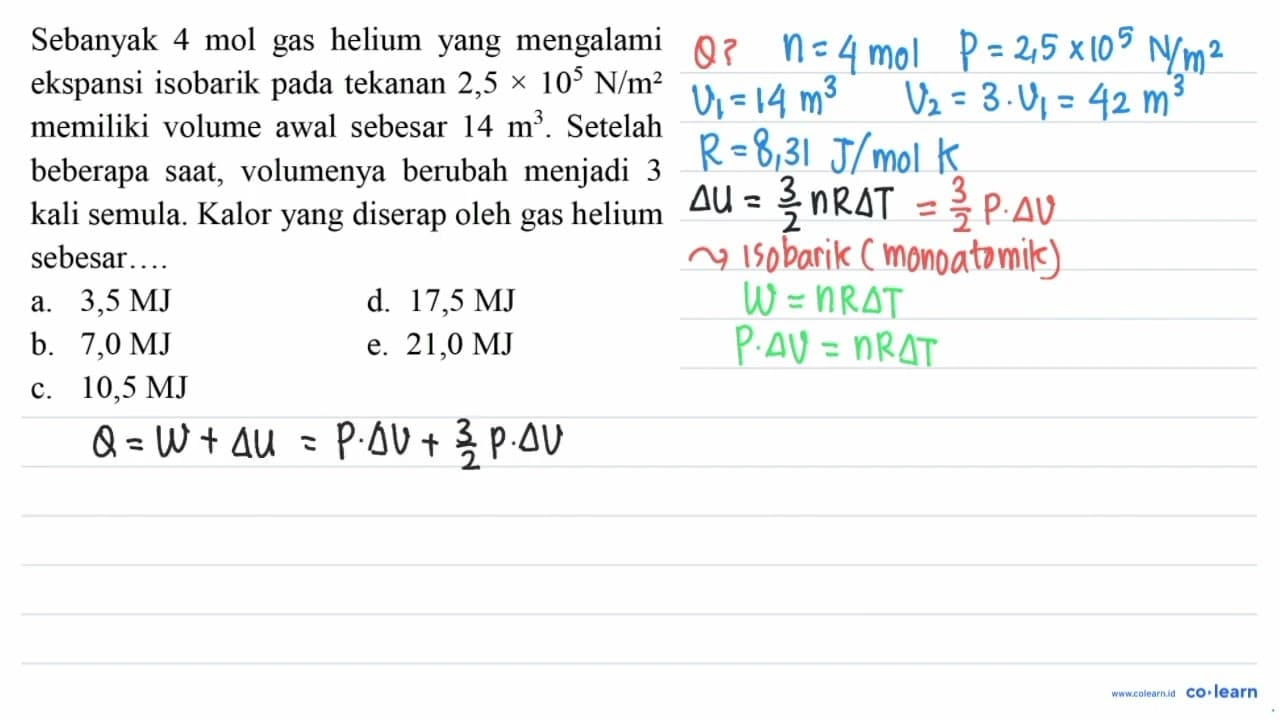 Sebanyak 4 mol gas helium yang mengalami
ekspansi isobarik pada tekanan 2,5 × 10⁵ N/m²
memiliki volume awal sebesar 14 m³. Setelah
beberapa saat, volumenya berubah menjadi 3
kali semula. Kalor yang diserap oleh gas helium
sebesar....
a. 3,5 MJ
b. 7,0 MJ
c. 10,5 MJ
d. 17,5 MJ
e. 21,0 MJ
Q? n = 4 mol P = 2,5 × 10⁵ N/m²
V₁ = 14 m³ V₂ = 3 . V₁ = 42 m³
R = 8,31 J/mol K
ΔU = 3/2 nRΔT = 3/2 P.ΔV
↝ Isobarik (monoatomik)
W = nRΔT
P.ΔV = nRΔT
Q = W + ΔU = P.ΔV + 3/2 P.ΔV
www.colearn.id co·learn